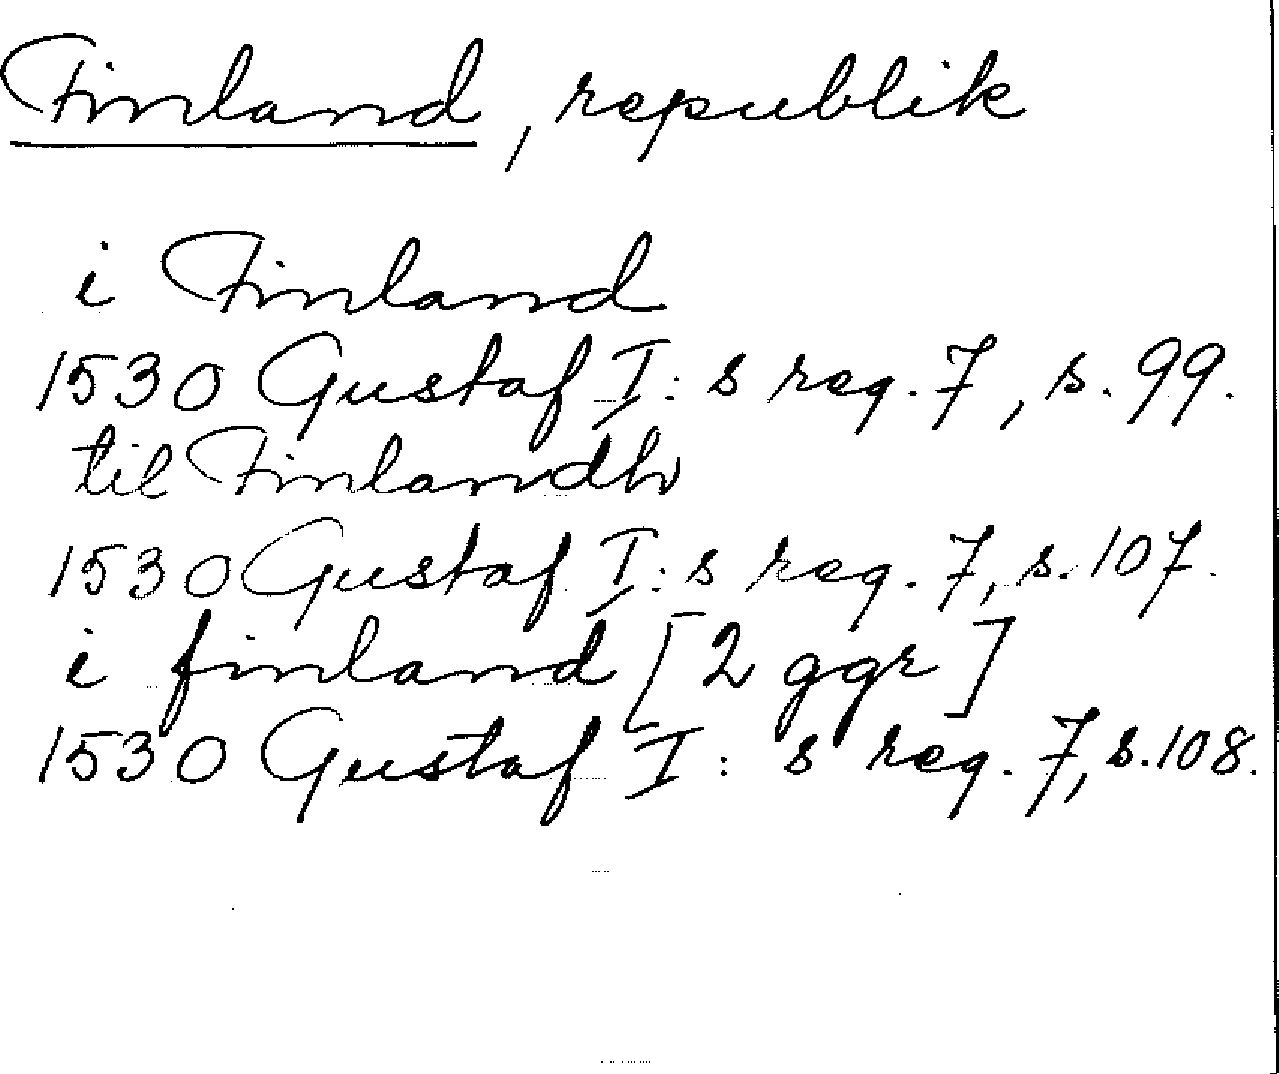 Finland, republik
i Finland
1530 Gustaf I: s reg. 7, s. 99.
til Finlandh
1530 Gustaf I: s reg. 7, s. 107.
i finland [2 ggr]
1530 Gustaf I: s reg. 7, s. 108.